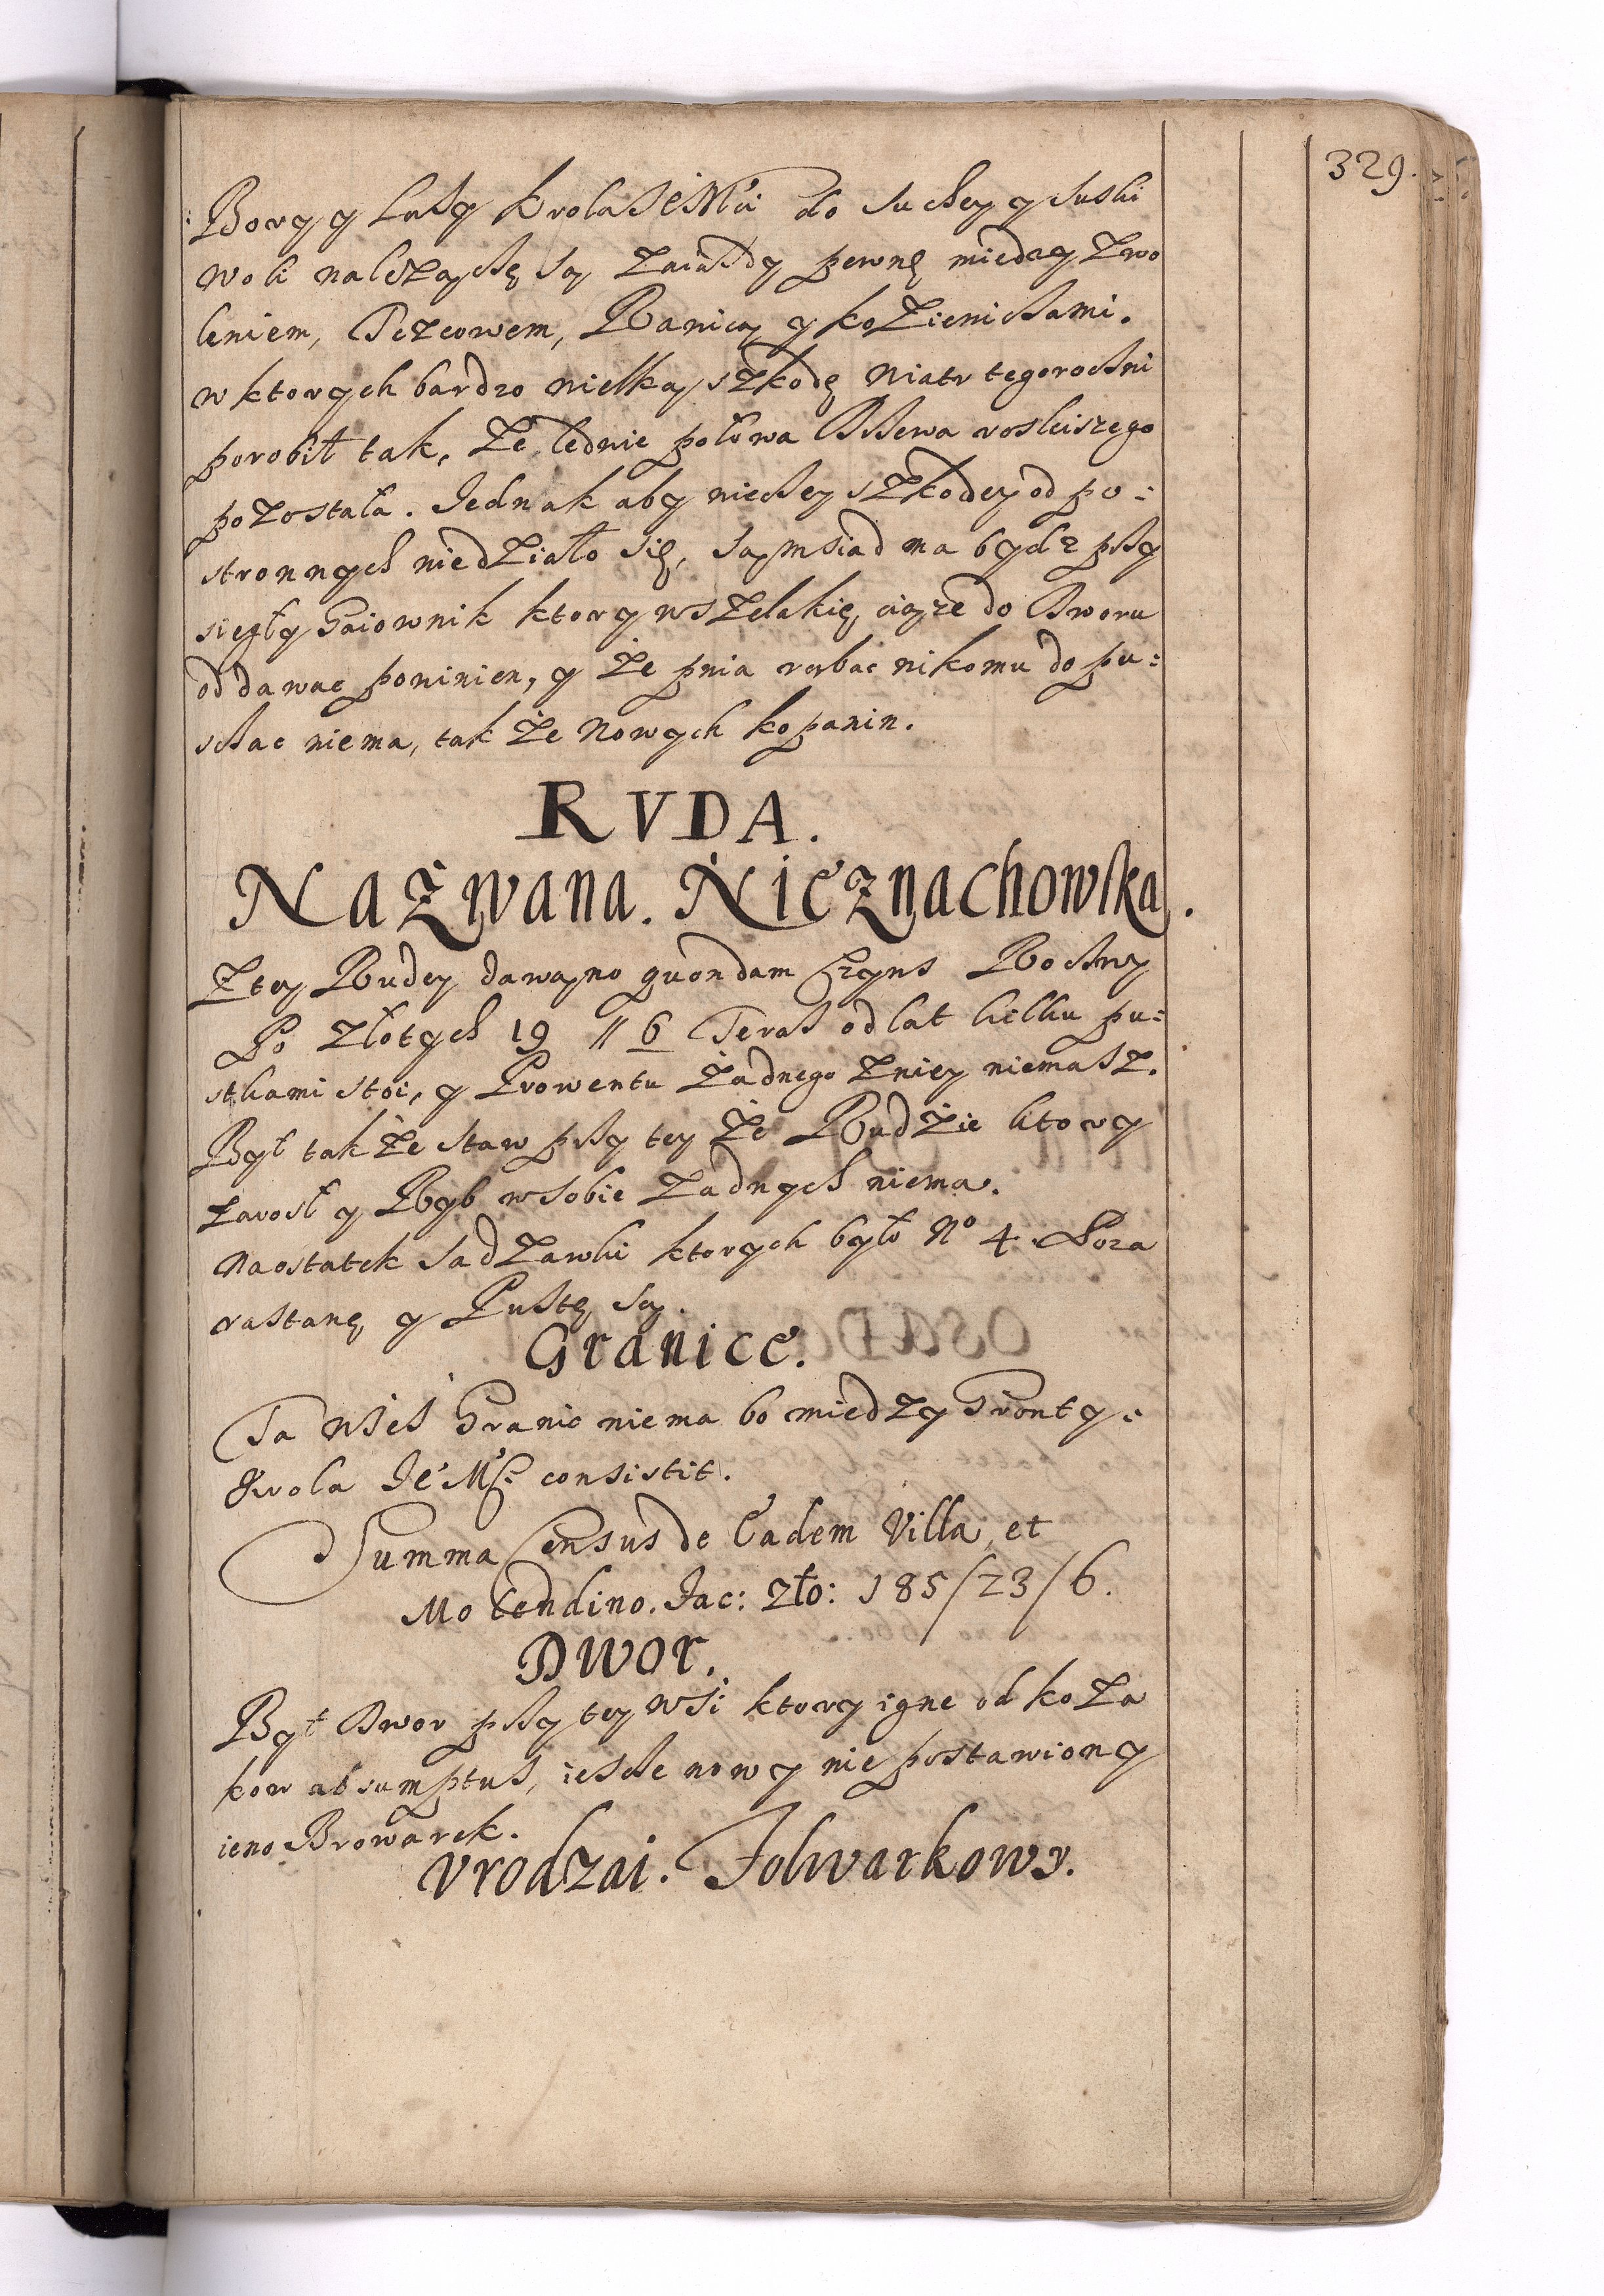 329.
Bory y Lasy Krola Je Mci do Suchey y Suski
Woli należące są zaiazdy pewnę miedzy Zwo
leniem, Pczcowem, Ranicą y Kozienicami.
w ktorych bardzo wielką szkodę wiatr tegoroczni
porobił tak, że ledwie połowa drzewa rosleiszego
pozostała. Jednak aby wieczey szkodey od po:
stronnych niedziało się, sąmsiad ma bydz przy
sięgły Gaiownik ktory wszelakię ciąze do Dworu
oddawac powinien, y że pnia rąbac nikomu dopu:
sczac niema, tak że nowych kopanin.
RVDA.
Nazwana. Nieznachowska.
Z tey Rudey dawano quondam Czyns Roczny
Po złotych 19 // 6 Teras od lat kilku pu:
stkami stoi, y Prowentu żadnego zniey niemasz.
Był także staw przy tey że Rudzie ktory
zarosł y Ryb w sobie żadnych niema.
Naostatek sadzawki ktorych było No 4 Poza
rastanę y Pustę są.
Granice.
Ta wies Granic niema bo miedzy Gronty:
Krola Je Mc: consistit.
Summa Census de Eadem Villa, et
Molendino. Fac: zło: 185/23/6.
Dwor.
Był Dwor przy tey wsi ktory igne od Koza
kow absumptus, iescze nowy nie postawiony
ieno Browarek.
Vrodzai. Folwarkowy.